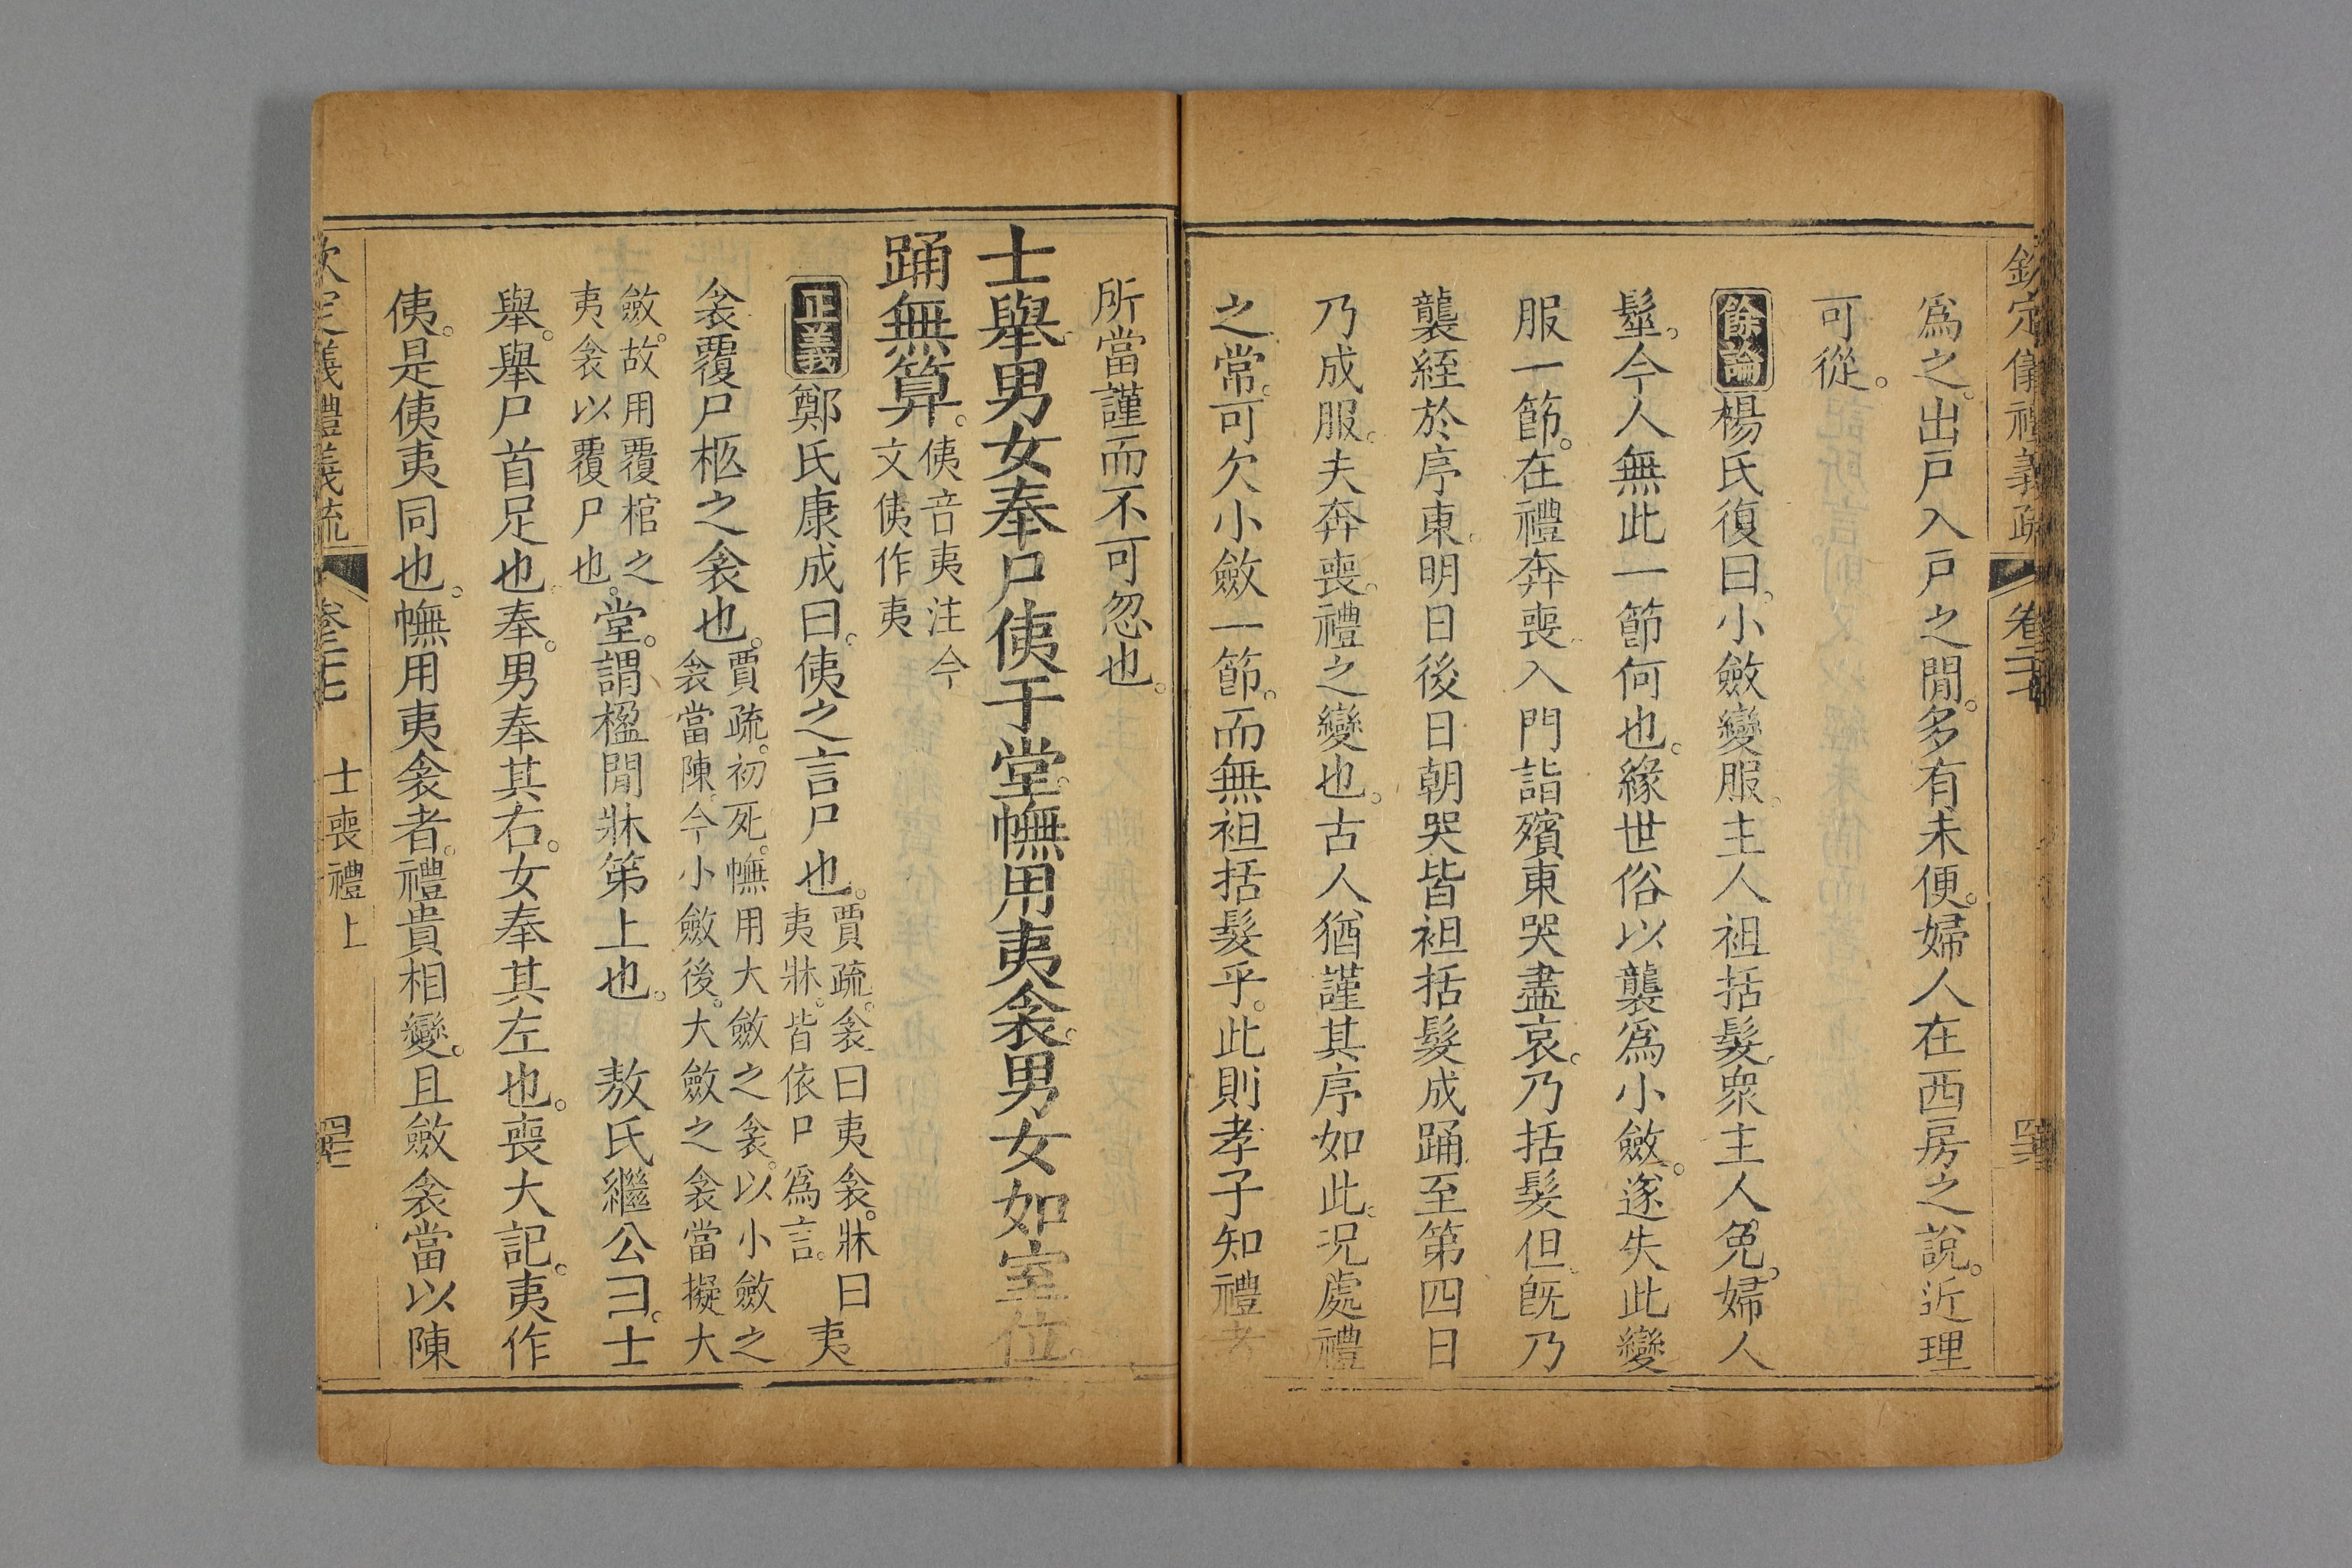 欽定儀禮義疏 卷二十七
爲之。出戸入戸之間。多有未便。婦人在西房之說。近理
可從。
餘論 楊氏復曰。小斂變服。主人袒括髮。衆主人免。婦人
髽。今人無此一節何也。緣世俗以襲爲小斂。遂失此變
服一節。在禮奔喪入門詣殯東哭盡哀。乃括髮但。旣乃
襲絰於序東。明日後日朝哭皆袒括髮成踊。至第四日
乃成服。夫奔喪。禮之變也。古人猶謹其序如此。況處禮
之常。可欠小斂一節。而無袒括髮乎。此則孝子知禮者
所當謹而不可忽也。
士舉男女奉尸侇于堂。幠用夷衾。男女如室位。
踊無算。侇音夷注今
文侇作夷
正義 鄭氏康成曰。侇之言尸也。賈疏。衾曰夷衾。牀曰
夷牀。皆依尸爲言。夷
衾覆尸柩之衾也。賈疏。初死。幠用大斂之衾。以小斂之
衾當陳。今小斂後。大斂之衾當擬大
斂。故用覆棺之
夷衾以覆尸也。堂。謂楹閒牀笫上也。 敖氏繼公曰。士
舉。舉尸首足也。奉。男奉其右。女奉其左也。喪大記。夷作
侇。是侇夷同也。幠用夷衾者。禮貴相變。且斂衾當以陳
欽定儀禮義疏 卷二十七 士喪禮上 四七